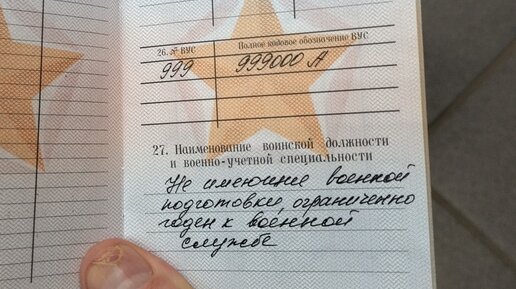 26. № ВУС
Полное кодовое обозначение ВУС
999
999000 А
27. Наименование воинской должности
и военно-учетной специальности
Не имеющие военной
подготовки, ограниченно
годен к военной
службе